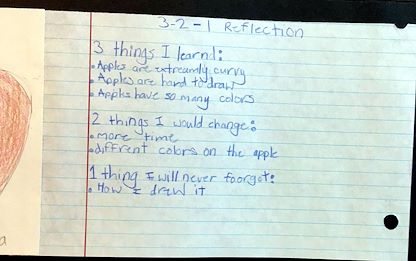 3-2-1 Reflection
3 things I learnd:
• Apples are extreamly curvy
• Apples are hard to draw
• Apples have so many colors
2 things I would change:
• more time
• diffrent colors on the apple
1 thing I will never foorget:
• How I draw it
a